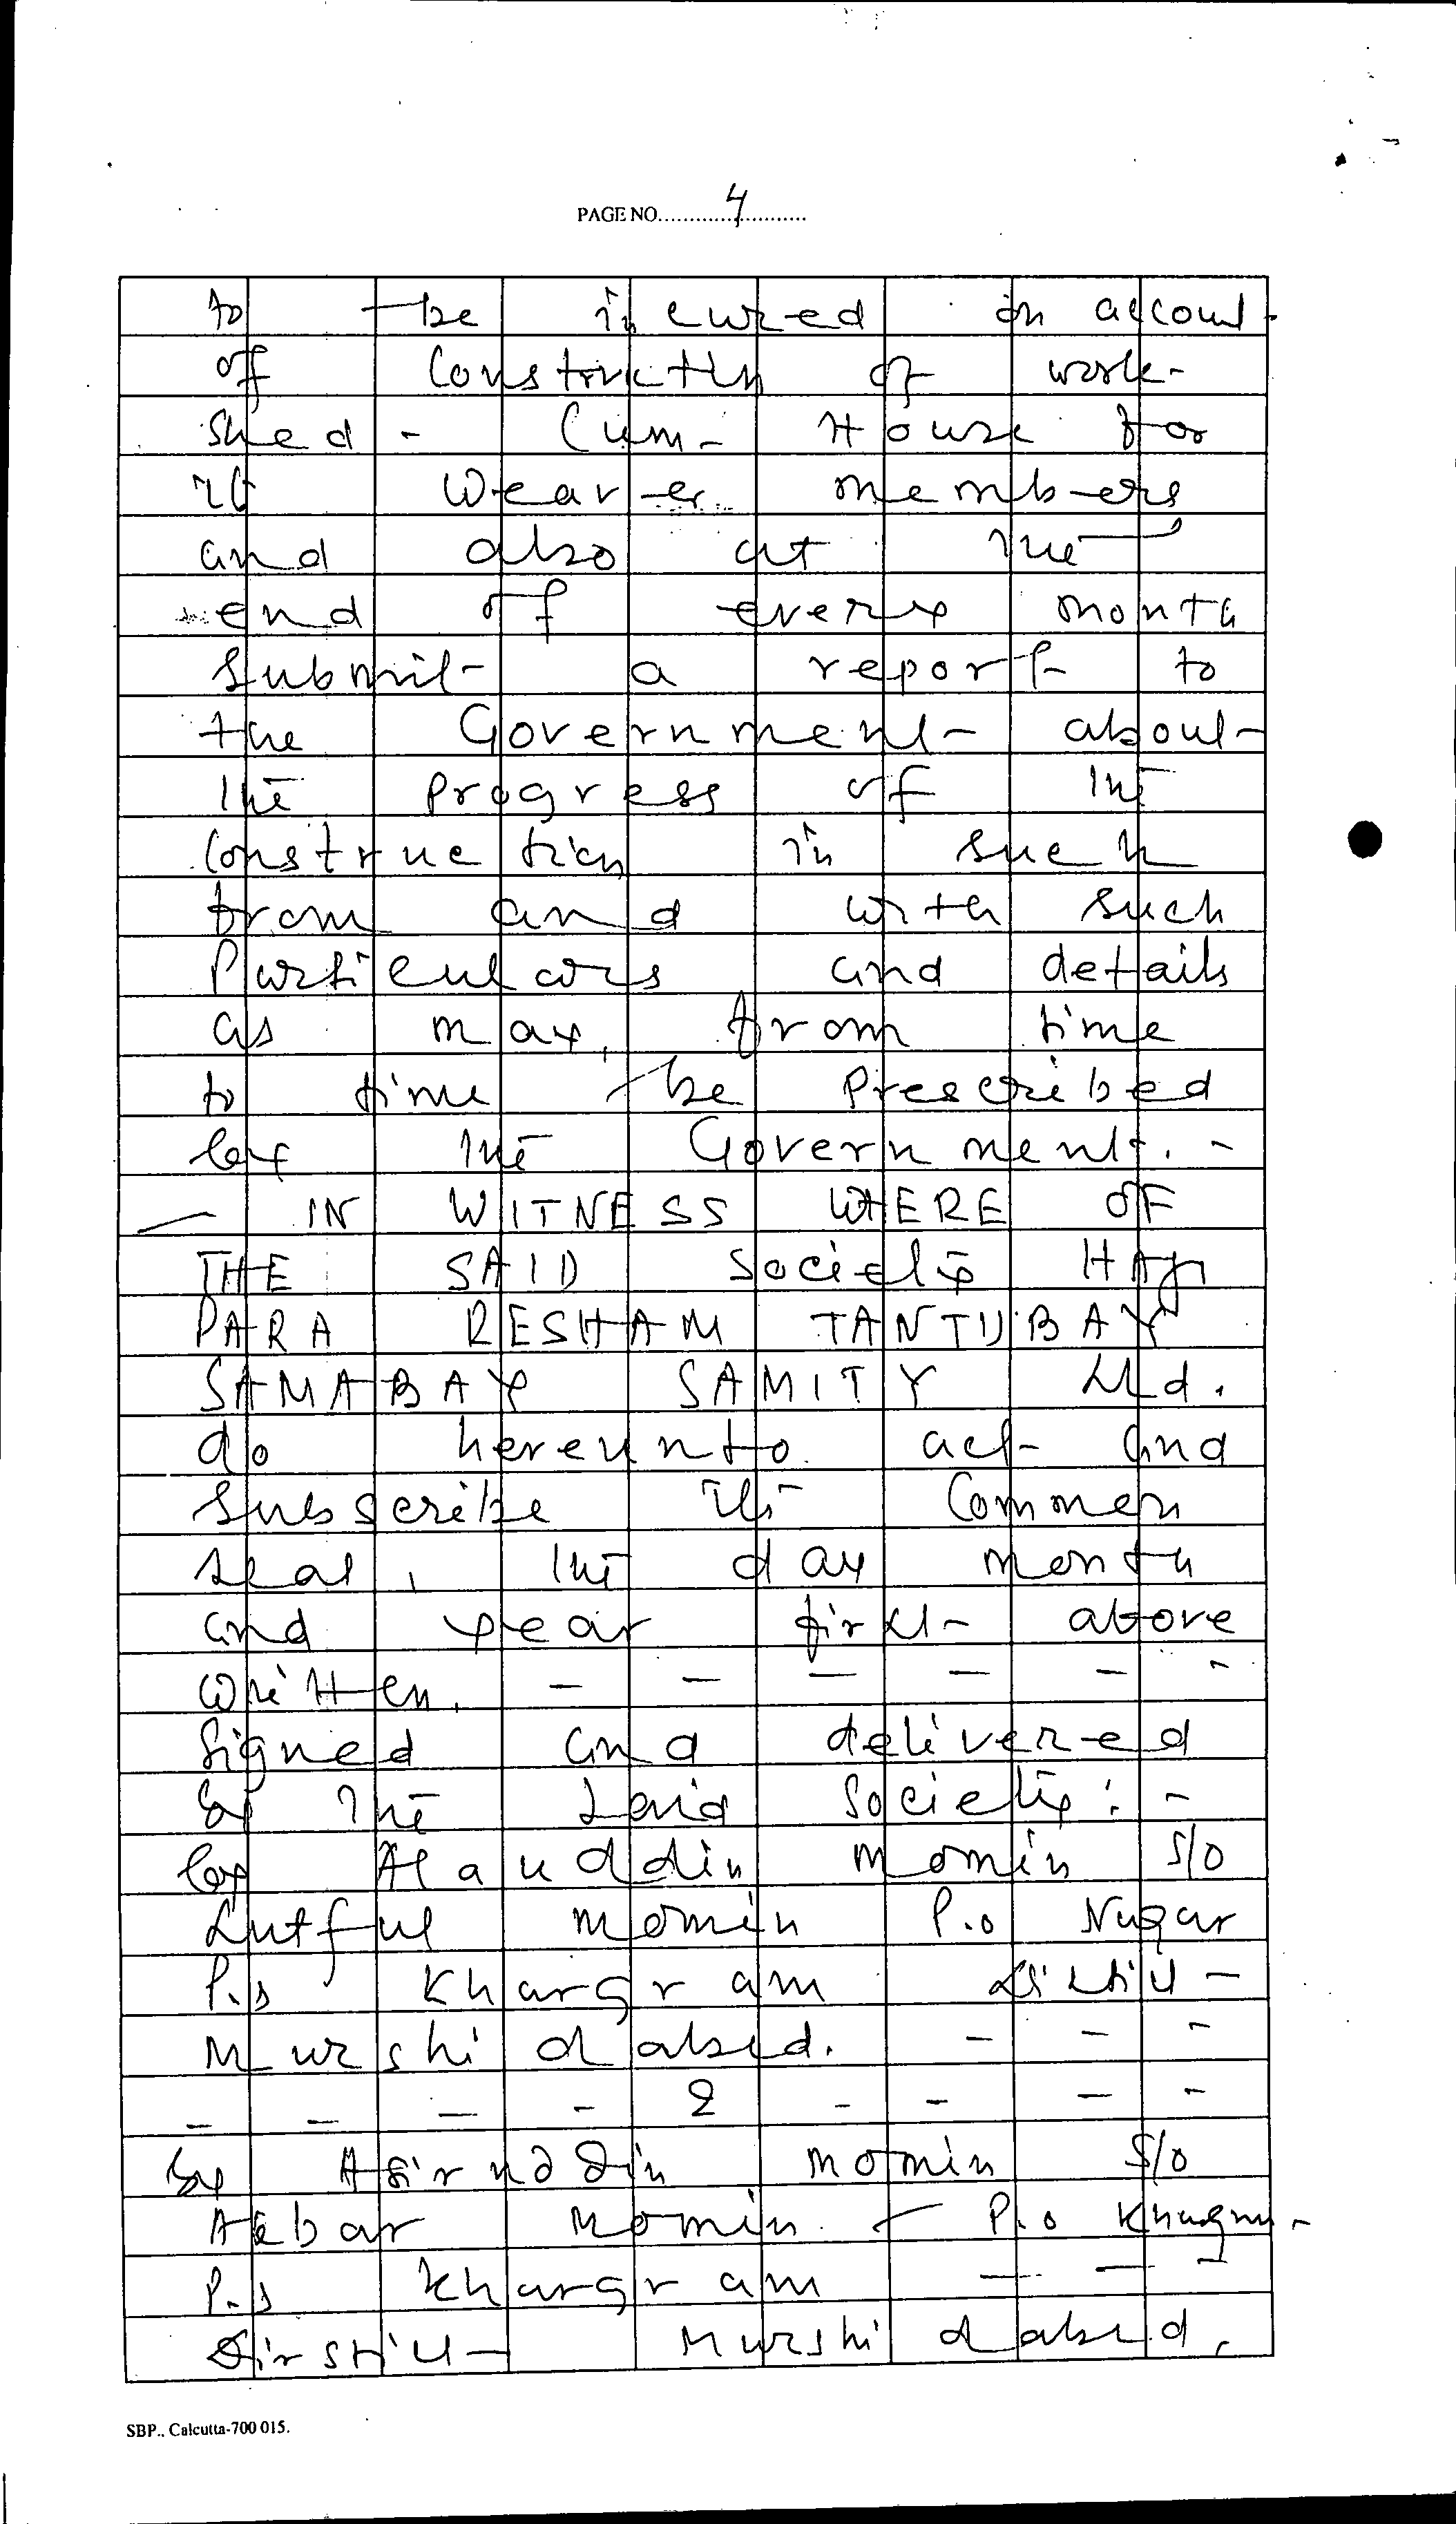 PAGE NO. 4
to be incured on account
of Construction of work-
shed - Cum - House for
its weaver members
and also at the
end of every month
submit a report to
the Government about
the progress of the
Construction in such
from and with such
Particulars and details
as may, from time
to time be Prescribed
by the Government. -
— IN WITNESS WHERE OF
THE SAID Society HAJI
PARA RESHAM TANTUBAY
SAMABAY SAMITY Ltd.
do hereunto act and
subscribe its Common
seal, the day month
and year first above
written. - - - - - -
Signed and delivered
by the said Society: -
by Alauddin momin S/O
Lutful momin P.o Nagar
P.s Khargram
Murshidabad. - - -
- - - - 2 - - - -
by momin S/O
Akbar momin - P.o
P.s Khargram - - -
Murshidabad.
SBP., Calcutta-700 015.